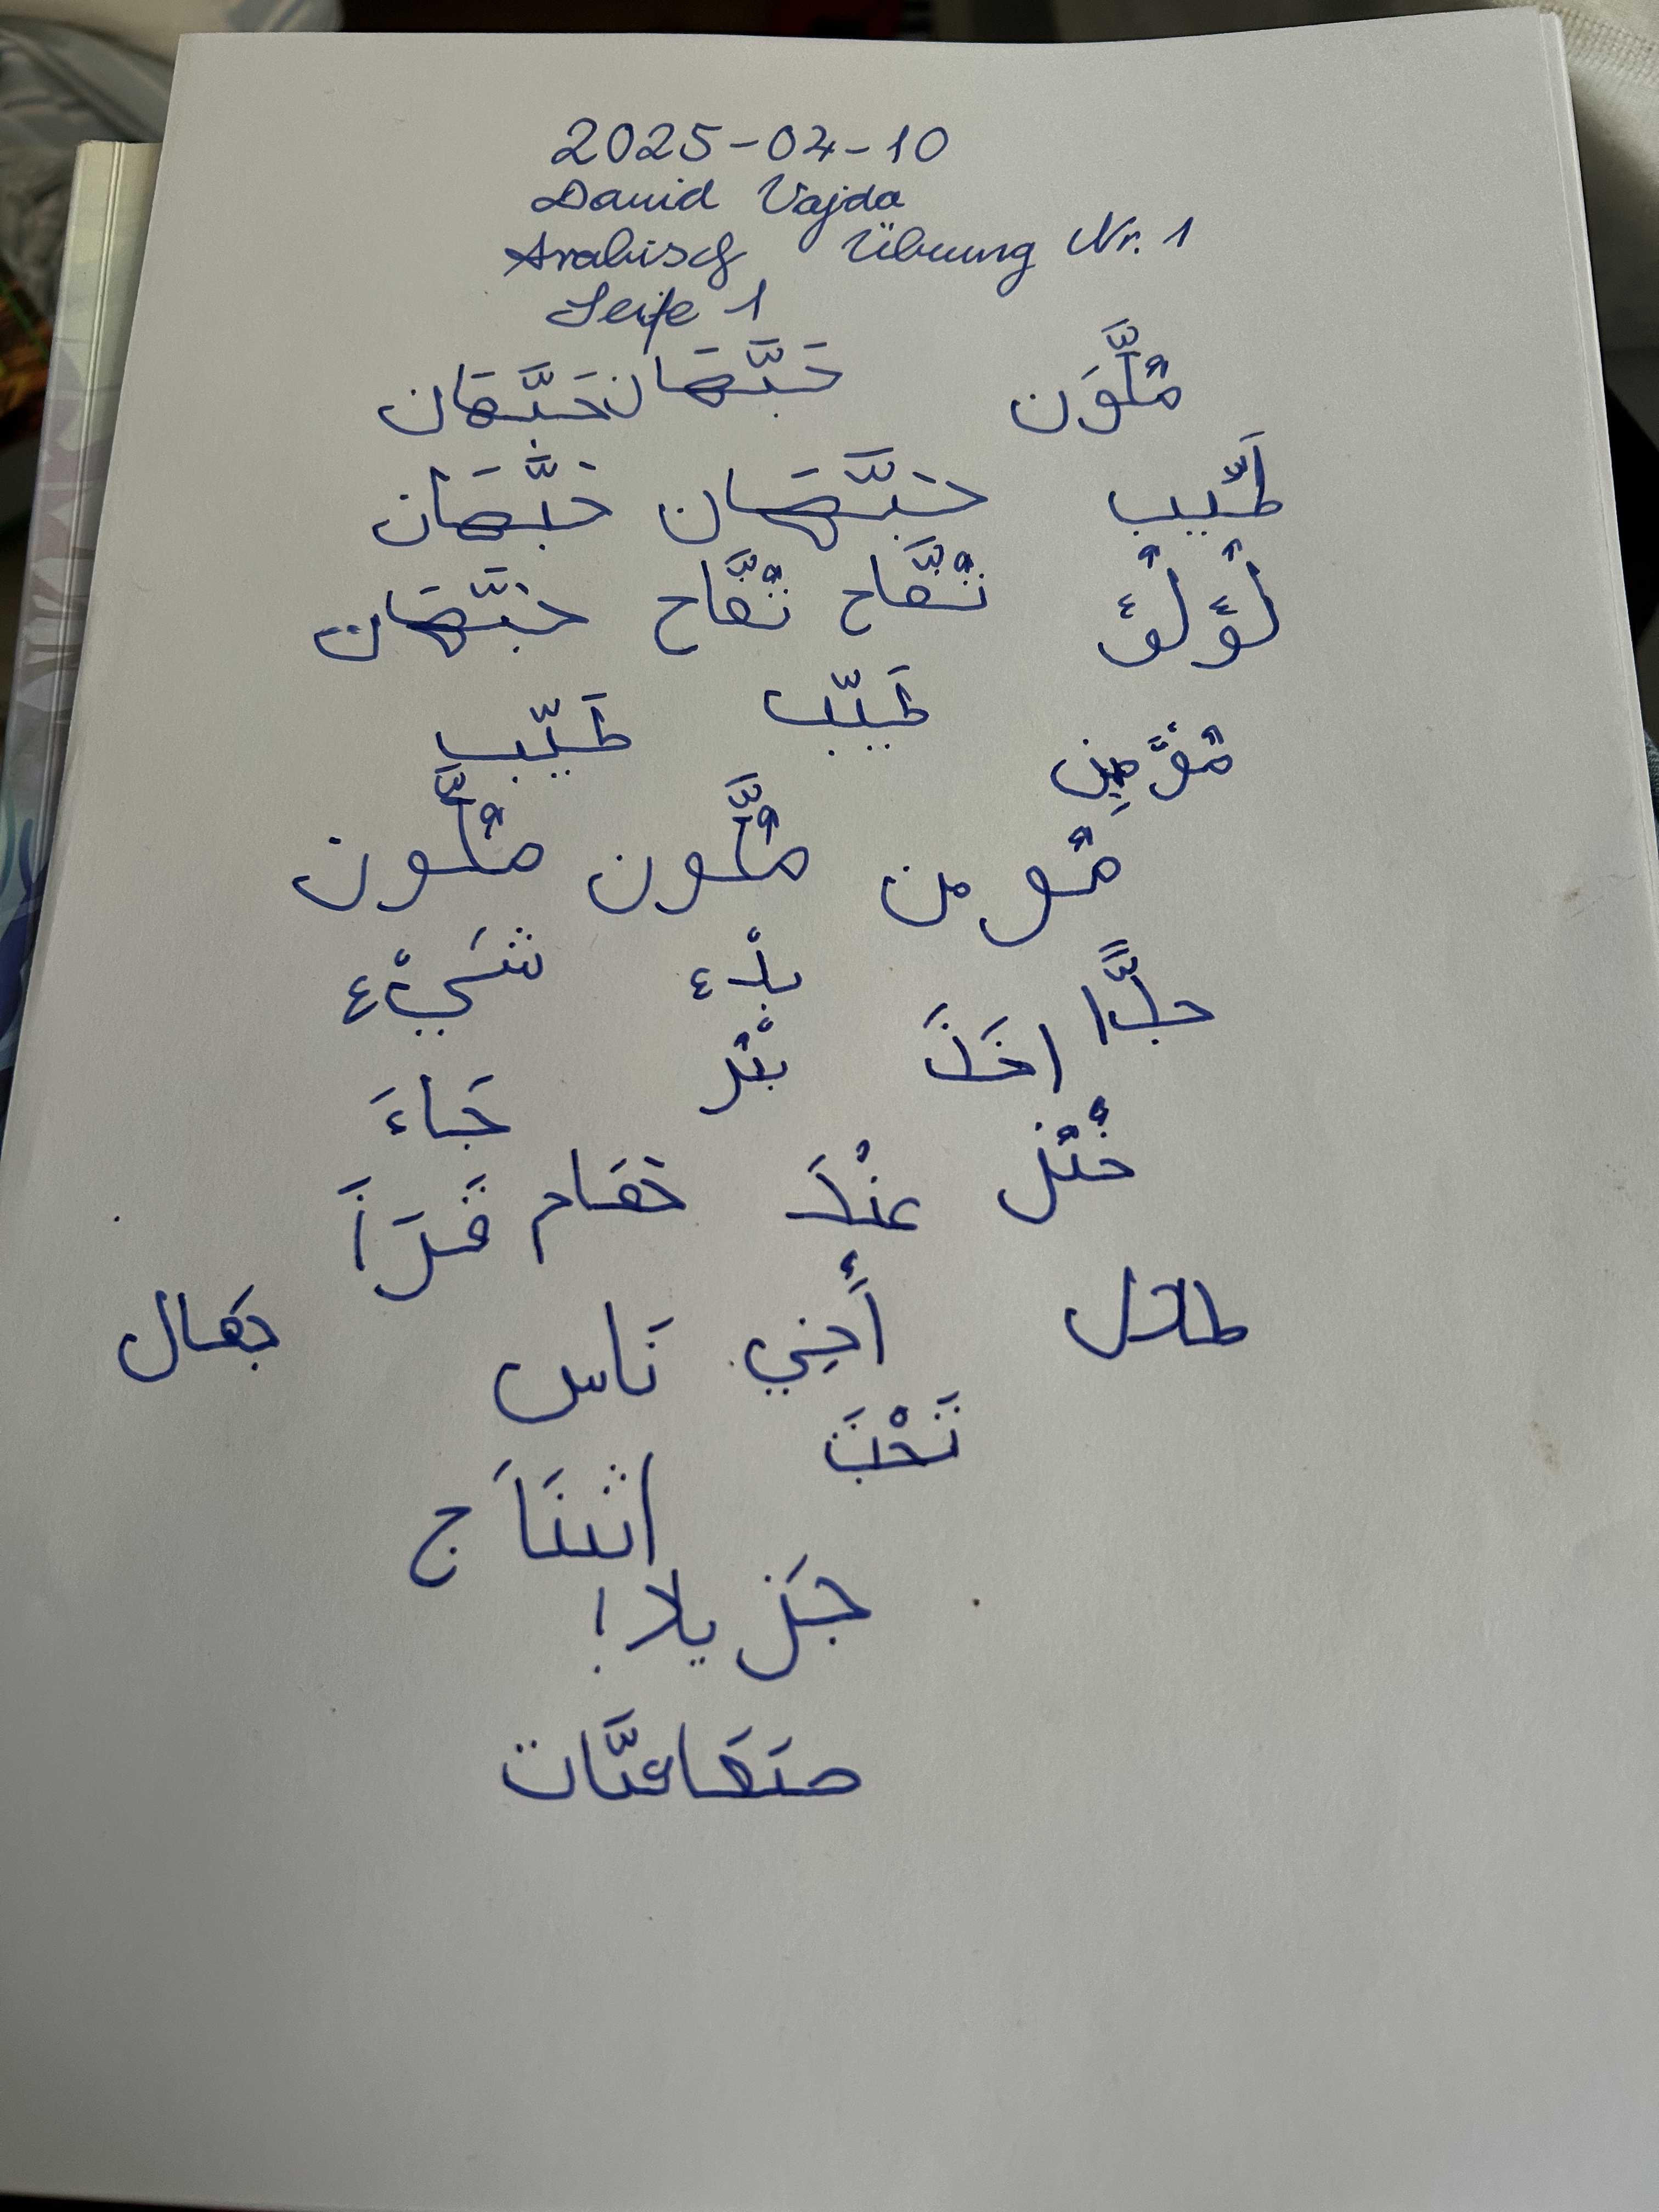 2025-04-10
David Vajda
Arabisch Übung Nr. 1
Seite 1
مُلَّوَن حَبَّهَان حَبَّهَان
طَيّب حَبَّهَان حَبَّهَان
لُؤلُؤ تُفَّاح تُفَّاح حَبَّهَان
طَيّب طَيّب
مُؤَمِن
مُومن مُلَّون مُلَّون
جلَّا بدْء شَيْء
بئْر
جَاءَ
قَرَأَ
طلال أَخِي نَاس جمَال
تَحْتَ
اثنَتَاَج
جَزيلا!